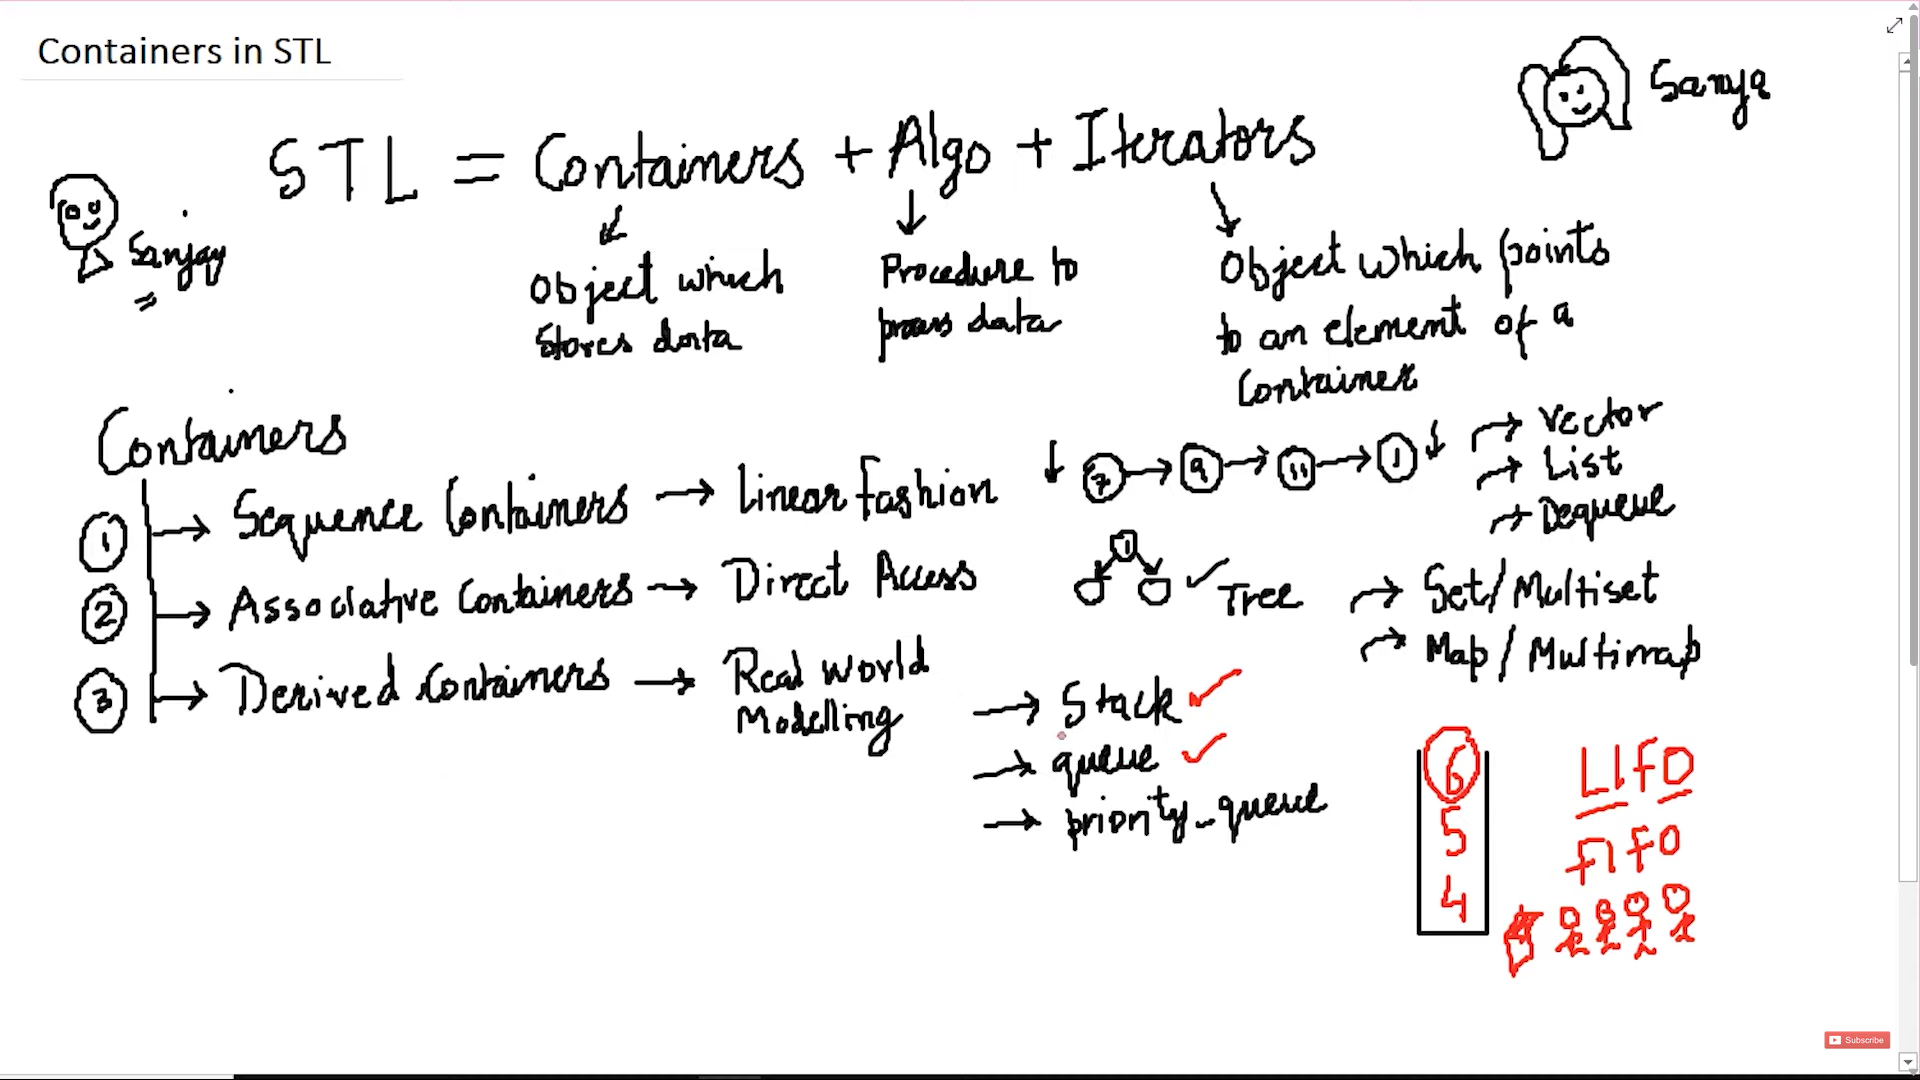 Containers in STL
Sanya
STL = Containers + Algo + Iterators
Sanjay
Object which
stores data
Procedure to
process data
Object which points
to an element of a
Container
Containers
1 Sequence Containers → Linear Fashion
7 → 9 → 11 → 1
→ Vector
→ List
→ Dequeue
2 Associative Containers → Direct Access
1
Tree
→ Set/Multiset
→ Map/Multimap
3 Derived Containers → Real World
Modelling
→ Stack
→ queue
→ priority_queue
6
5
4
LIFO
FIFO
Subscribe